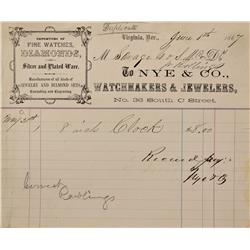 Duplicate
Virginia, Nev. June 1st 1867
IMPORTERS OF
FINE WATCHES,
DIAMONDS,
Silver and Plated Ware.
Manufacturers of all kinds of
JEWELRY AND DIAMOND SETS,
Enameling and Engraving.
M Savage
To NYE & CO.,
WATCHMAKERS & JEWELERS,
No. 36 South C Street.
8 inch Clock 28.00
Received Pay.
Nye & Co
Correct
Rawlings